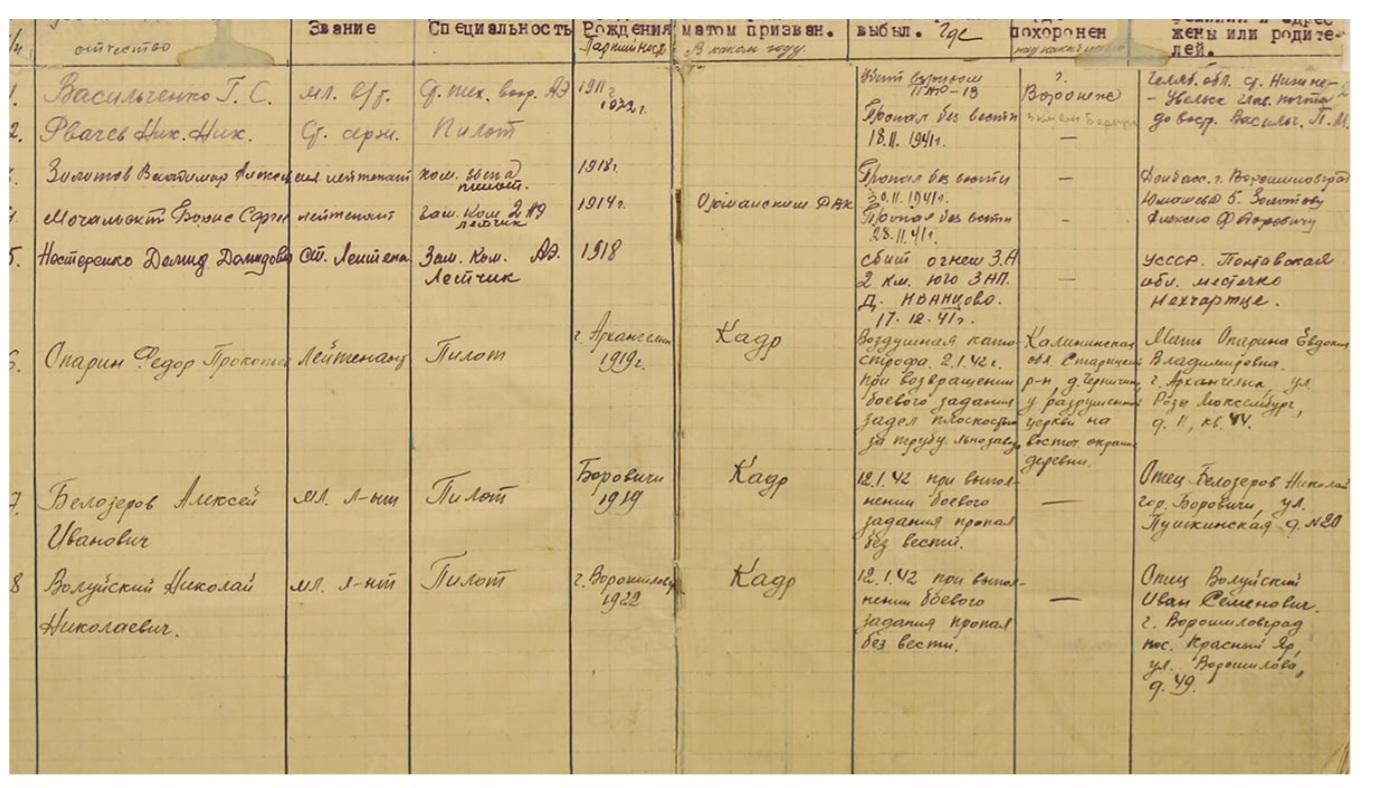 отчество
Звание
Специальность
Рождения
Партийность
матом призван.
В каком году.
выбыл. Где
похоронен
жены или родите-
лей.
Васильченко Г. С.
мл. в/т.
Ст. тех. воор. АЭ
1911 г
1942 г.
Воронеж
Увельск глав. почта
до востр. Васильч. П. М.
2.
Рвачев Ник. Ник.
Ст. серж.
Пилот
Пропал без вести
18.11.1941г.
—
Золотов Владимир Алексе
лейтенант
ком. звена
пилот.
1918г.
Пропал без вести
30.11.1941г.
—
Донбасс. г. Ворошиловград
5. Золотову
Алексею Федоровичу
Борис Серг
лейтенант
Зам. Ком. 2 АЭ
летчик
1914г.
РВК
Пропал без вести
28.11.41г.
–
5.
Нестеренко Демид Давидов
Ст. Лейтена
Зам. Ком. АЭ.
Летчик
1918
сбит огнем З.А
2 км. юго ЗАП.
Д. ИВАНЦОВО.
17.12.41г.
—
УССР. Полтавская
обл. местечко
6.
Опарин Федор Прокопье
Лейтенант
Пилот
г. Архангельск
1919г.
Кадр
Воздушная ката-
строфа. 2.1.42г.
при возвращении
боевого задания
задел плоскостью
за трубу льнозавод
Калининская
обл. Старицкий
р-н, д.
у разрушенной
церкви на
восточ. окраине
деревни.
Мать Опарина Евдокия
Владимировна.
г. Архангельск, ул.
Розы Люксембург,
д. 11, кв. 44.
7.
Белозеров Алексей
Иванович
мл. л-нт
Пилот
Боровичи
1919
Кадр
12.1.42 при выпол-
нении боевого
задания пропал
без вести.
—
Отец Белозеров Николай
гор. Боровичи, ул.
Пушкинская д. №20
8
Волуйский Николай
Николаевич.
мл. л-нт
Пилот
г. Ворошиловг
1922
Кадр
12.1.42 при выпол-
нении боевого
задания пропал
без вести.
—
Отец Волуйский
Иван Семенович.
г. Ворошиловград
пос. Красный Яр,
ул. Ворошилова,
д. 49.